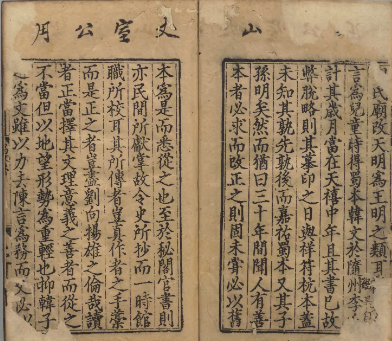 山丈室公用
氏廟改天明為王明之類耳
言為兒童時得蜀本韓文於隨州李
計其歲月當在天禧中年且其書已故
弊脫略則其摹印之日與祥符杭本蓋
未知其孰先孰後而嘉祐蜀本又其子
孫明矣然而猶曰三十年間聞人有善
本者必求而改正之則固未嘗必以舊
本為是而悉從之也至於秘閣官書則
亦民間所獻掌故令史所抄而一時館
職所校耳其所傳者豈真作者之手藁
而是正之者豈盡劉向揚雄之倫哉讀
者正當擇其文理意義之善者而從之
不當但以地望形勢為重輕也抑韓子
為文雖以力去陳言為務而又必以